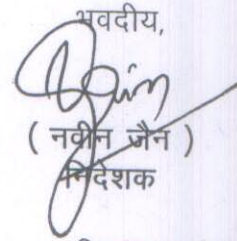 भवदीय,
( नवीन जैन )
निदेशक